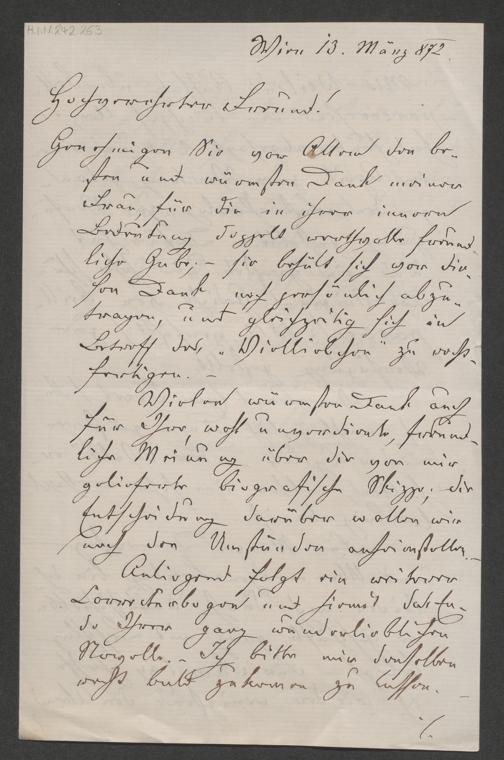 H.I.N. 242.253
Wien 13. März 872.
Hochverehrter Freund!
Genehmigen Sie vor Allem den be-
sten und wärmsten Dank meiner
Frau, für die in ihrer innern
Bedeutung doppelt werthvolle freund-
liche Gabe; – sie behält sich vor die-
sen Dank noch persönlich abzu-
tragen, und gleichzeitig sich in
Betreff des „Violliebchen“ zu recht-
fertigen. –
Vielen wärmsten Dank auch
für Ihre, wohl unverdiente, freund-
liche Meinung über die von mir
gelieferte biografische Skizze; die
Entscheidung darüber wollen wir
noch den Umständen anheimstellen. –
Anliegend folgt ein weiterer
Correcturbogen und hiemit das En-
de Ihrer ganz wunderlieblichen
Novelle. – Ich bitte mir denselben
recht bald zukommen zu lassen. –
./.